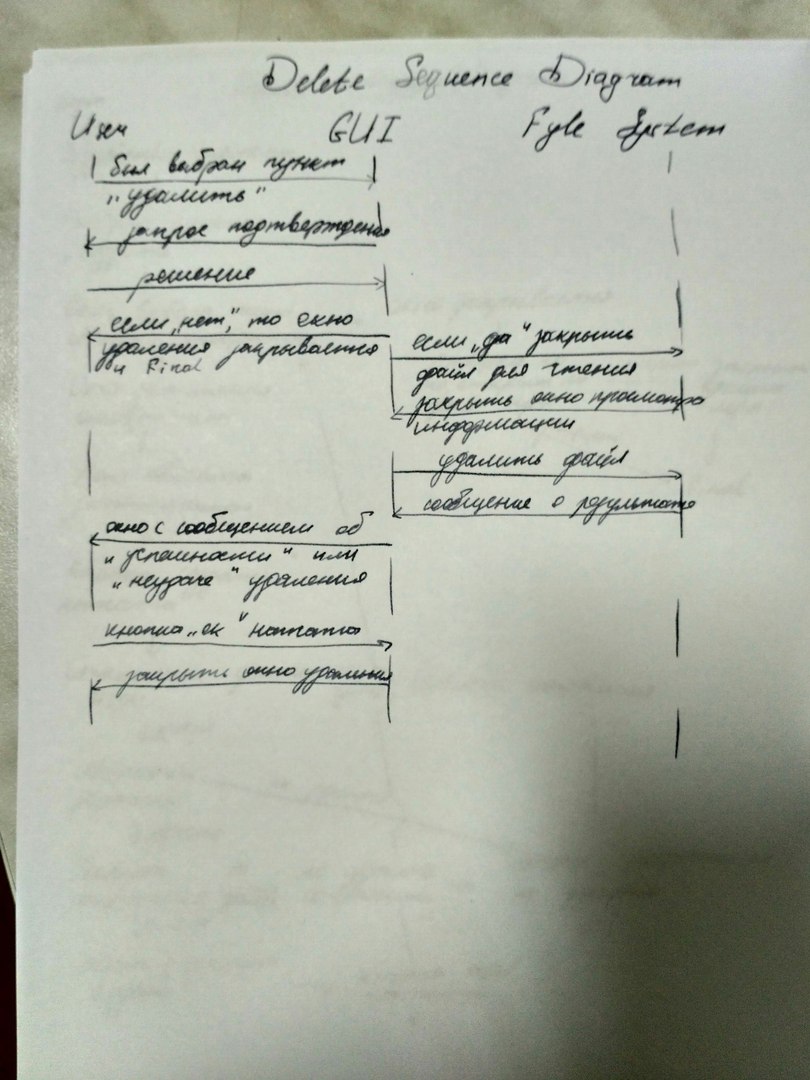 Delete Sequence Diagram
User GUI Fyle System
был выбран пункт
"удалить"
запрос подтверждения
решение
если "нет", то окно
удаления закрывается
и Final
если "да" закрыть
файл для чтения
закрыть окно просмотра
информации
удалить файл
сообщение о результате
окно с сообщением об
"успешности" или
"неудаче" удаления
кнопка "ок" нажата
закрыть окно удаления